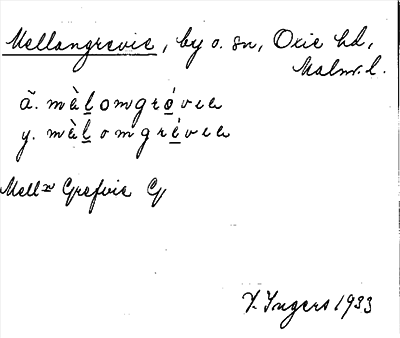 Mellangrevie, by o. sn, Oxie hd,
Malm. l.
ä. màlomgróvea
y. màlomgrévea
Mell:n Grefvie Cy
I. Ingers 1933